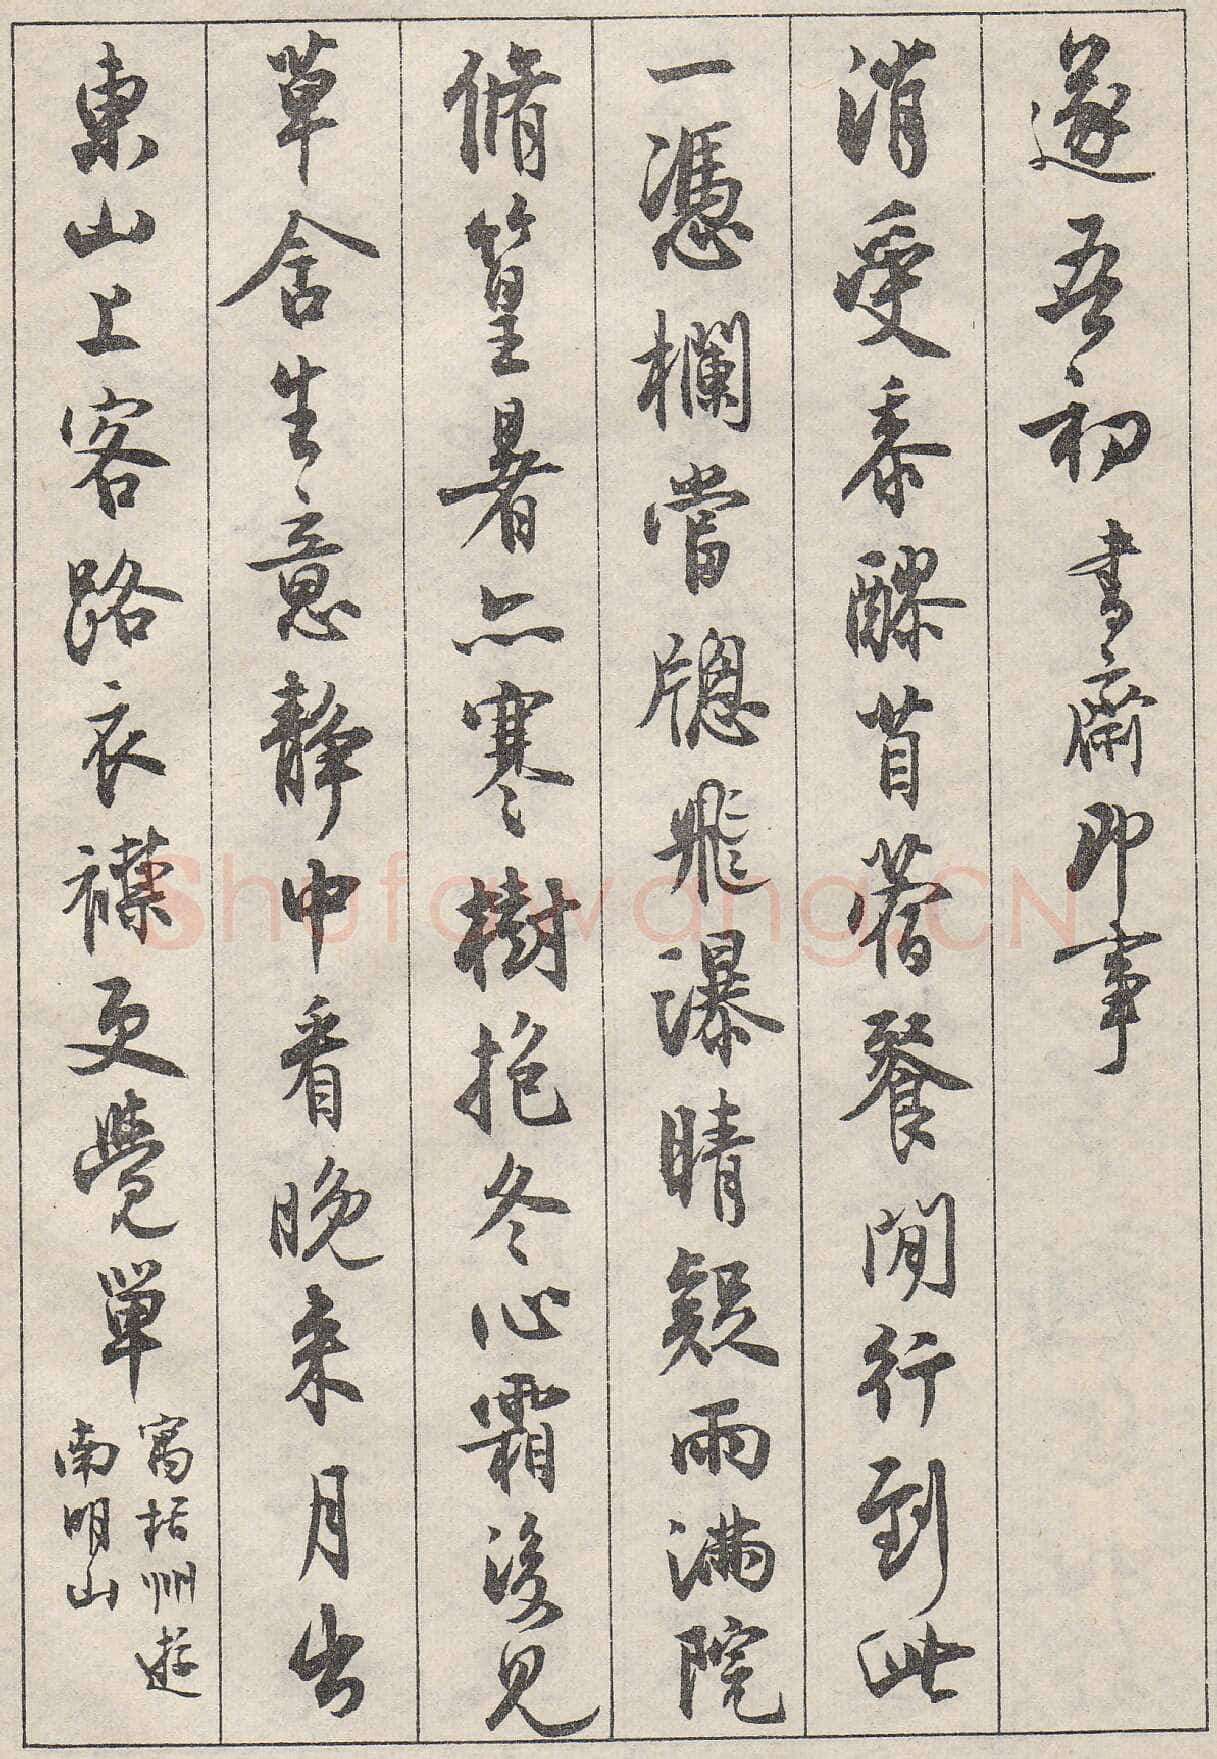 遂吾初 書齋即事
消受黍醪苜蓿餐閒行到此
一憑欄當牕飛瀑晴疑雨滿院
脩篁暑亦寒樹抱冬心霜後見
草含生意靜中看晚来月出
東山上客路衣襟更覺單
寓括州遊
南明山
Shufawang.CN